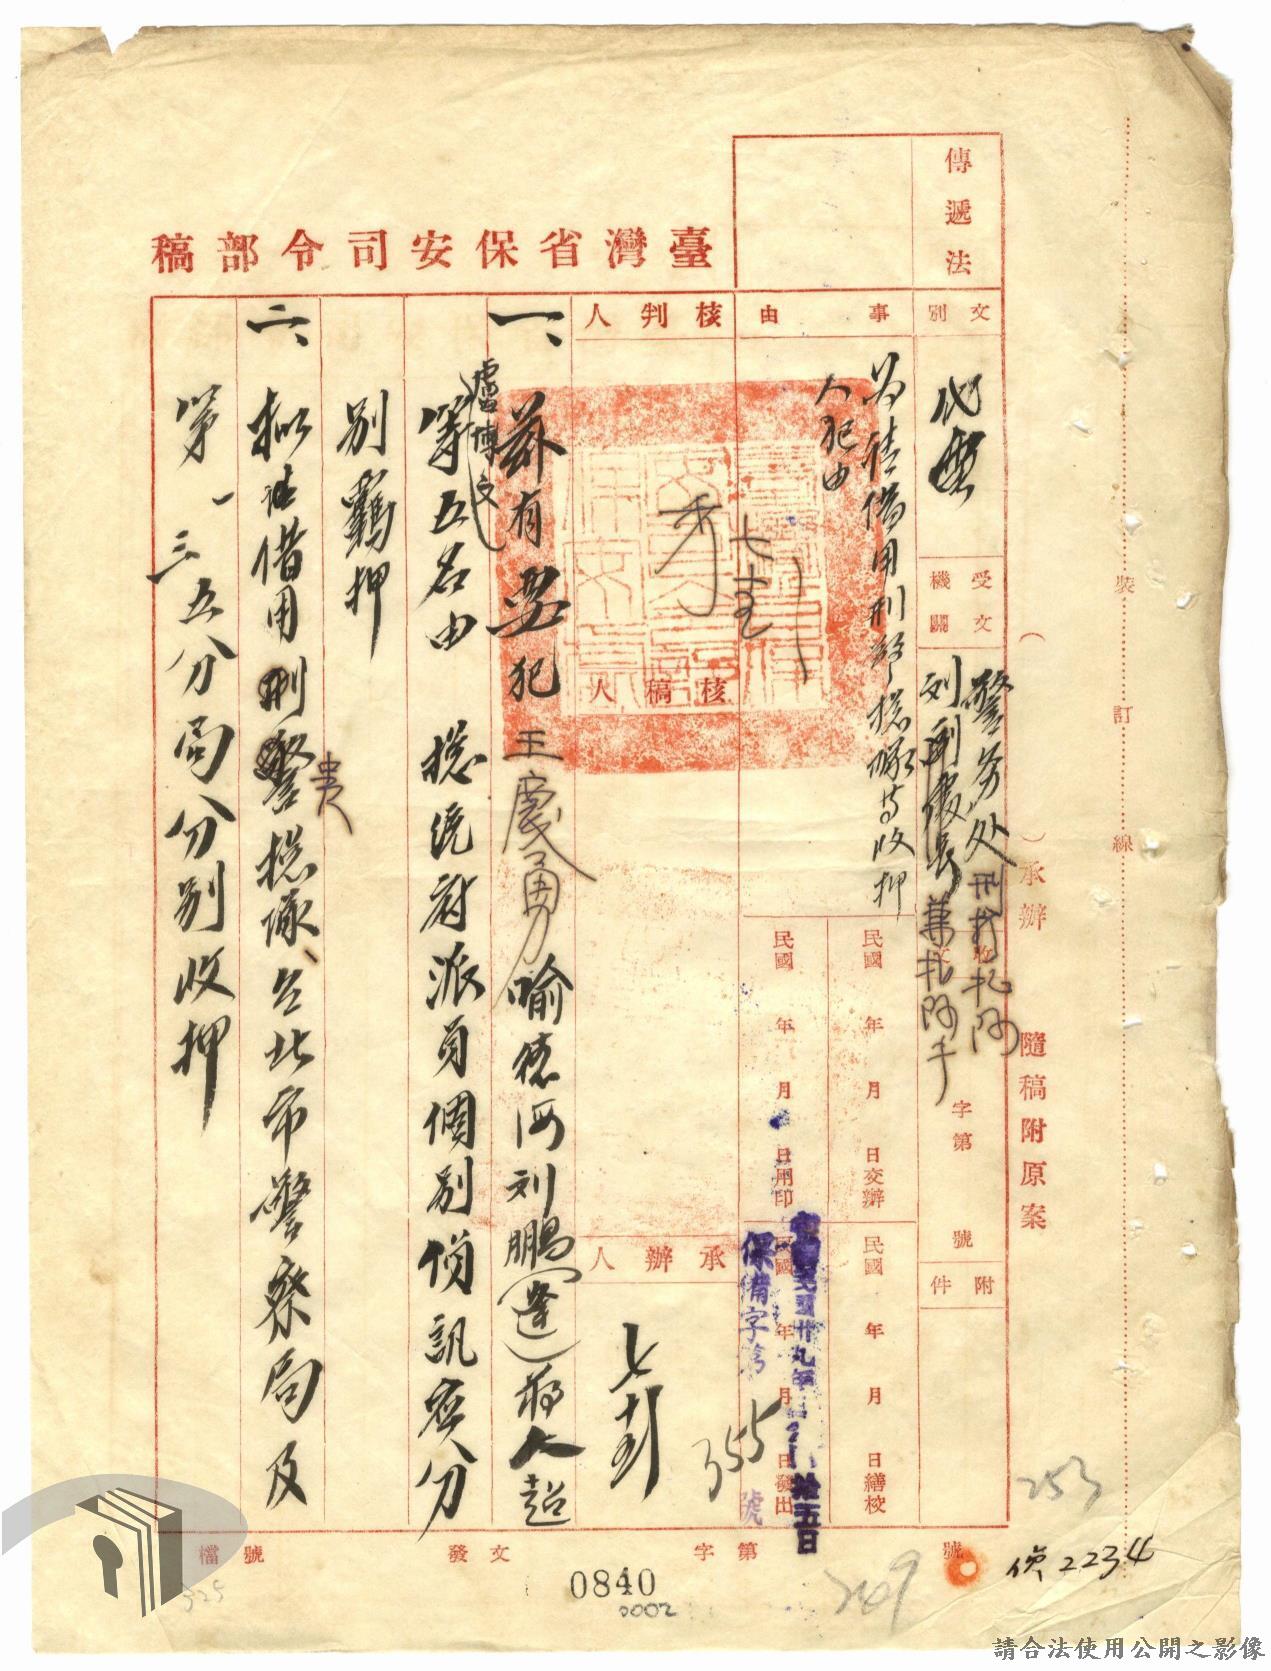 傳遞法
臺灣省保安司令部稿
文別
代電
事由
為請借用刑警總隊等收押
人犯由
受文機關
警務处刑警總隊
刘副處長兼總隊長
收文 字第 號
附件
核判人
核稿人
七
承辦人
民國 年 月 日交辦
民國 年 月 日繕校
民國 年 月 日用印
民國 年 月 日發出
中華民國卅九年 月拾五日
保備字第355號
一、茲有要犯王慶勇喻德海刘鵬(達)蒋人超
盧博文
等五名由 總統府派員個別偵訊宜分
別羈押
二、擬請借用刑警總隊、台北市警察局及
貴
第一三五分局分別收押
( )承辦 隨稿附原案
裝訂線
檔號
發文 字第 號
0840
0002
325
249
253
偵2234
請合法使用公開之影像